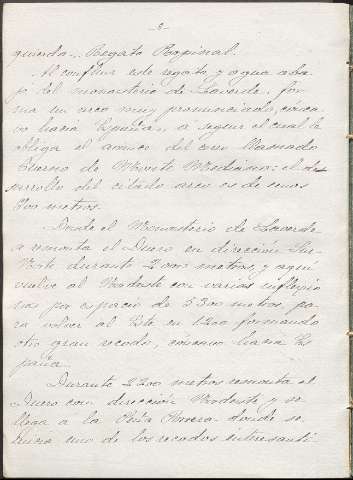 - 2 -
quierda. Regato Raginal.
Al confluir este regato, y agua aba-
jo del monasterio de Laverde, for-
ma un arco muy pronunciado, cónca-
vo hacia España, a seguir el cual le
obliga el arranco del cerro llamado
Cuerno de Monte Mediano: el de-
sarrollo del citado arco es de unos
800 metros.
Desde el Monasterio de Laverde
remonta el Duero en dirección Su-
Este durante 2.000 metros, y aquí
vuelve al Nordeste con varias inflexio-
nes por espacio de 3300 metros, pa-
ra volver al Este en 1200 formando
otro gran recodo, cóncavo hacia Es-
paña.
Durante 2200 metros remonta el
Duero con dirección Nordeste y se
llega a la Peña donde se
inicia uno de los recodos interesanti-